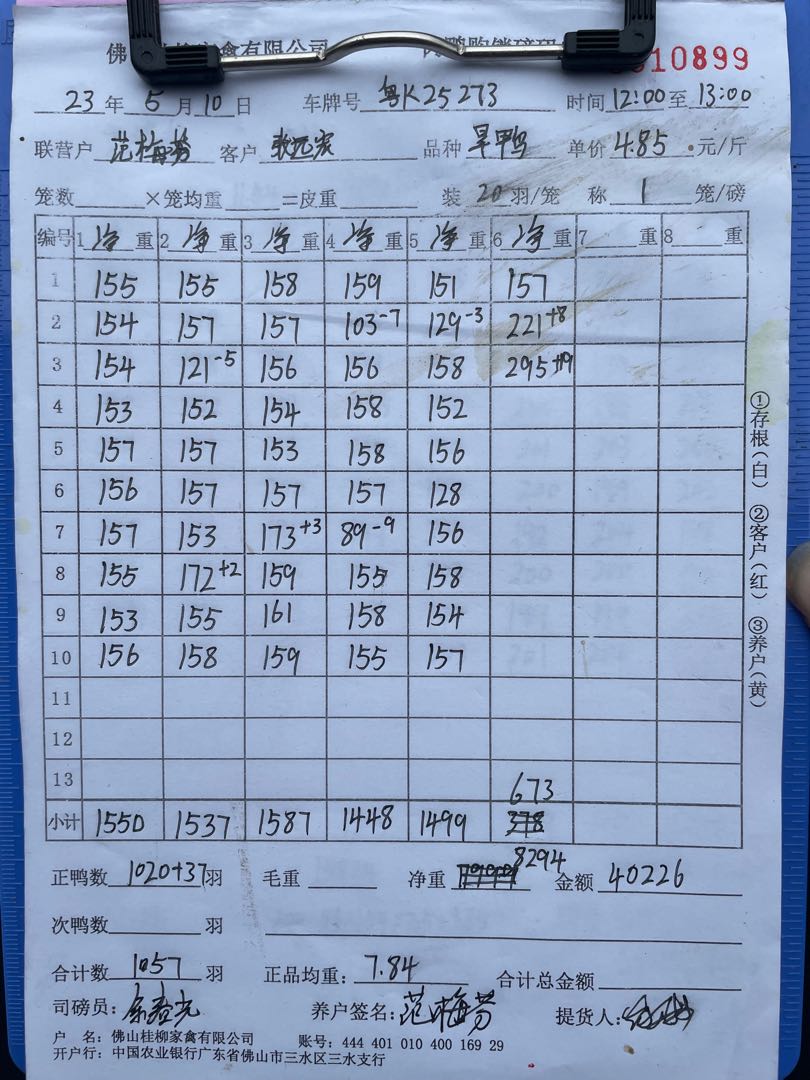 佛山桂柳家禽有限公司
0010899
23年5月10日 车牌号 粤K25273 时间12:00至13:00
联营户 范梅芬 客户 品种 旱鸭 单价4.85元/斤
笼数 ×笼均重 =皮重 装20羽/笼 称 1 笼/磅
编号 1净重 2净重 3净重 4净重 5净重 6净重 7 重 8 重
1 155 155 158 159 151 157
2 154 157 157 103-7 129-3 221+8
3 154 121-5 156 156 158 295+19
4 153 152 154 158 152
5 157 157 153 158 156
6 156 157 157 157 128
7 157 153 173+3 89-9 156
8 155 172+2 159 155 158
9 153 155 161 158 154
10 156 158 159 155 157
11
12
13 673
小计 1550 1537 1587 1448 1499 378
正鸭数 1020+37羽 毛重 净重 8294 金额 40226
次鸭数 羽
合计数 1057 羽 正品均重: 7.84 合计总金额
司磅员: 养户签名: 范梅芬 提货人:
户 名: 佛山桂柳家禽有限公司 账号: 444 401 010 400 169 29
开户行: 中国农业银行广东省佛山市三水区三水支行
①存根(白) ②客户(红) ③养户(黄)